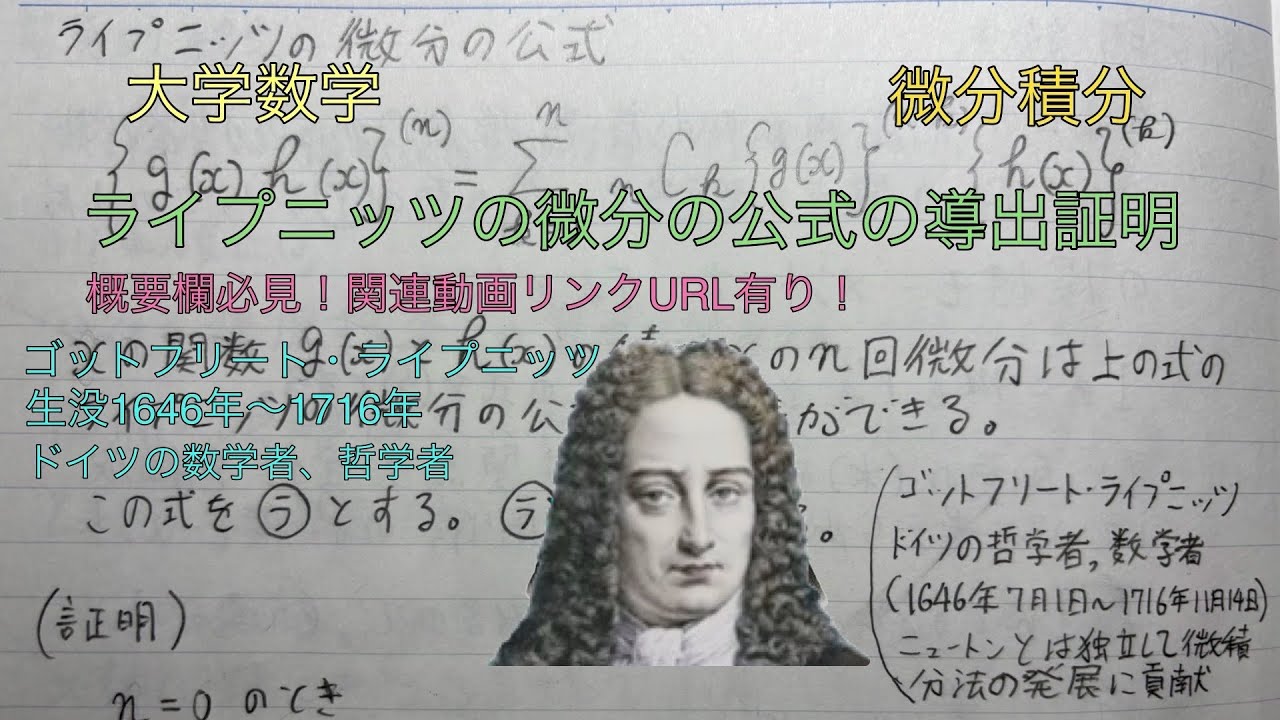 ライプニッツの微分の公式
大学数学
微分積分
{g(x)h(x)}^(n) = Σ^n nCk{g(x)} {h(x)}^(k)
ライプニッツの微分の公式の導出証明
概要欄必見!関連動画リンクURL有り!
の関数 の n回微分は上の式の
ゴットフリート・ライプニッツ
生没1646年〜1716年
微分の公 ができる。
ドイツの数学者、哲学者
この式を㋶とする。㋶ 。
(ゴットフリート・ライプニッツ
ドイツの哲学者,数学者
(1646年7月1日〜1716年11月14日)
ニュートンとは独立して微積
分法の発展に貢献
(証明)
n=0 のとき